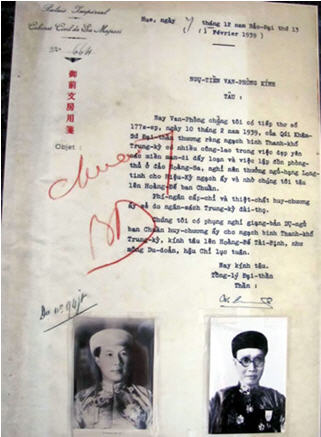 Palais Impérial
Cabinet Civil de Sa Majesté
Nº 66H
御前文房用箋
Objet :
Hue, ngày tháng 12 năm Bảo-Đại thứ 13
Février 1939)
NGỰ-TIỀN VĂN-PHÒNG KÍNH
TÂU :
Nay Văn-Phòng chúng tôi có tiếp thơ số
177s-sp, ngày 10 tháng 2 năm 1939, của Quí Khâm-
Sứ Đại-thần thương rằng ngạch binh Thanh-khố
Trung-kỳ có nhiều công-lao trong việc dẹp yên
các miền man-di dấy loạn và việc lập đồn phòng-
thủ ở đảo Hoàng-Sa, nghĩ nên thưởng ngũ-hạng Long-
tinh cho Hiệu-Kỳ ngạch ấy và nhờ chúng tôi tâu
lên Hoàng-Đế ban Chuẩn.
Phí-ngân cấp-chỉ và thiệt-chất huy-chương
ấy sẽ do ngân-sách Trung-kỳ đài-thọ.
Chúng tôi có phụng nghĩ giạng-bản Dụ-ngữ
ban Chuẩn huy-chương ấy cho ngạch binh Thanh-khố
Trung-kỳ, kính tâu lên Hoàng-Đế Tài-Định, như
mông Du-doãn, hậu Chỉ lục tuân.
Nay kính tâu.
Tổng-lý Đại-thần
Thần :
chuẩn
BĐ